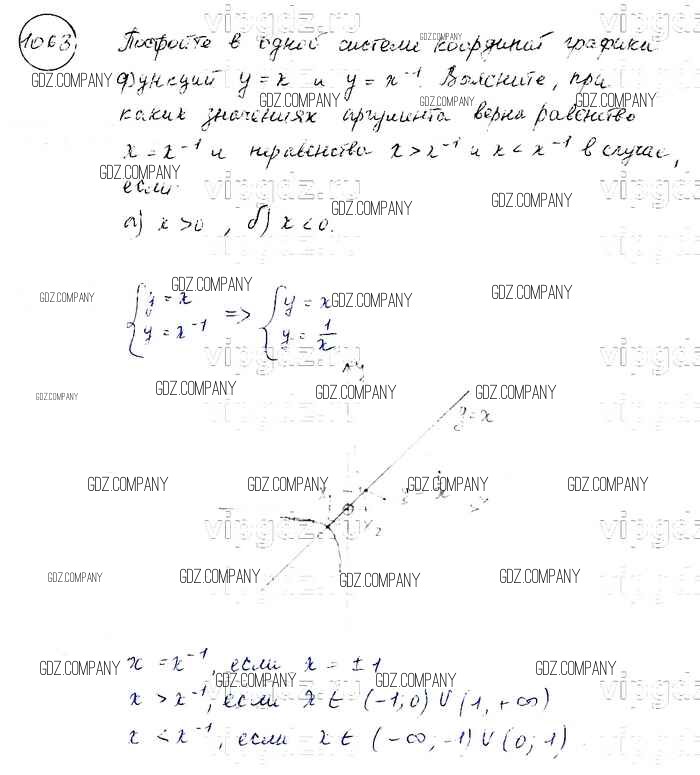 1063. Постройте в одной системе координат графики
функций y = x и y = x⁻¹. Выясните, при
каких значениях аргумента верна равенство
x = x⁻¹ и неравенства x > x⁻¹ и x < x⁻¹ в случае,
если
а) x > 0, б) x < 0.
{ y = x => { y = x
{ y = x⁻¹ { y = 1/x
y
y = x
x = x⁻¹, если x = ±1
x > x⁻¹, если x ∈ (-1; 0) ∪ (1, +∞)
x < x⁻¹, если x ∈ (-∞; -1) ∪ (0; 1)
GDZ.COMPANY
vipgdz.ru